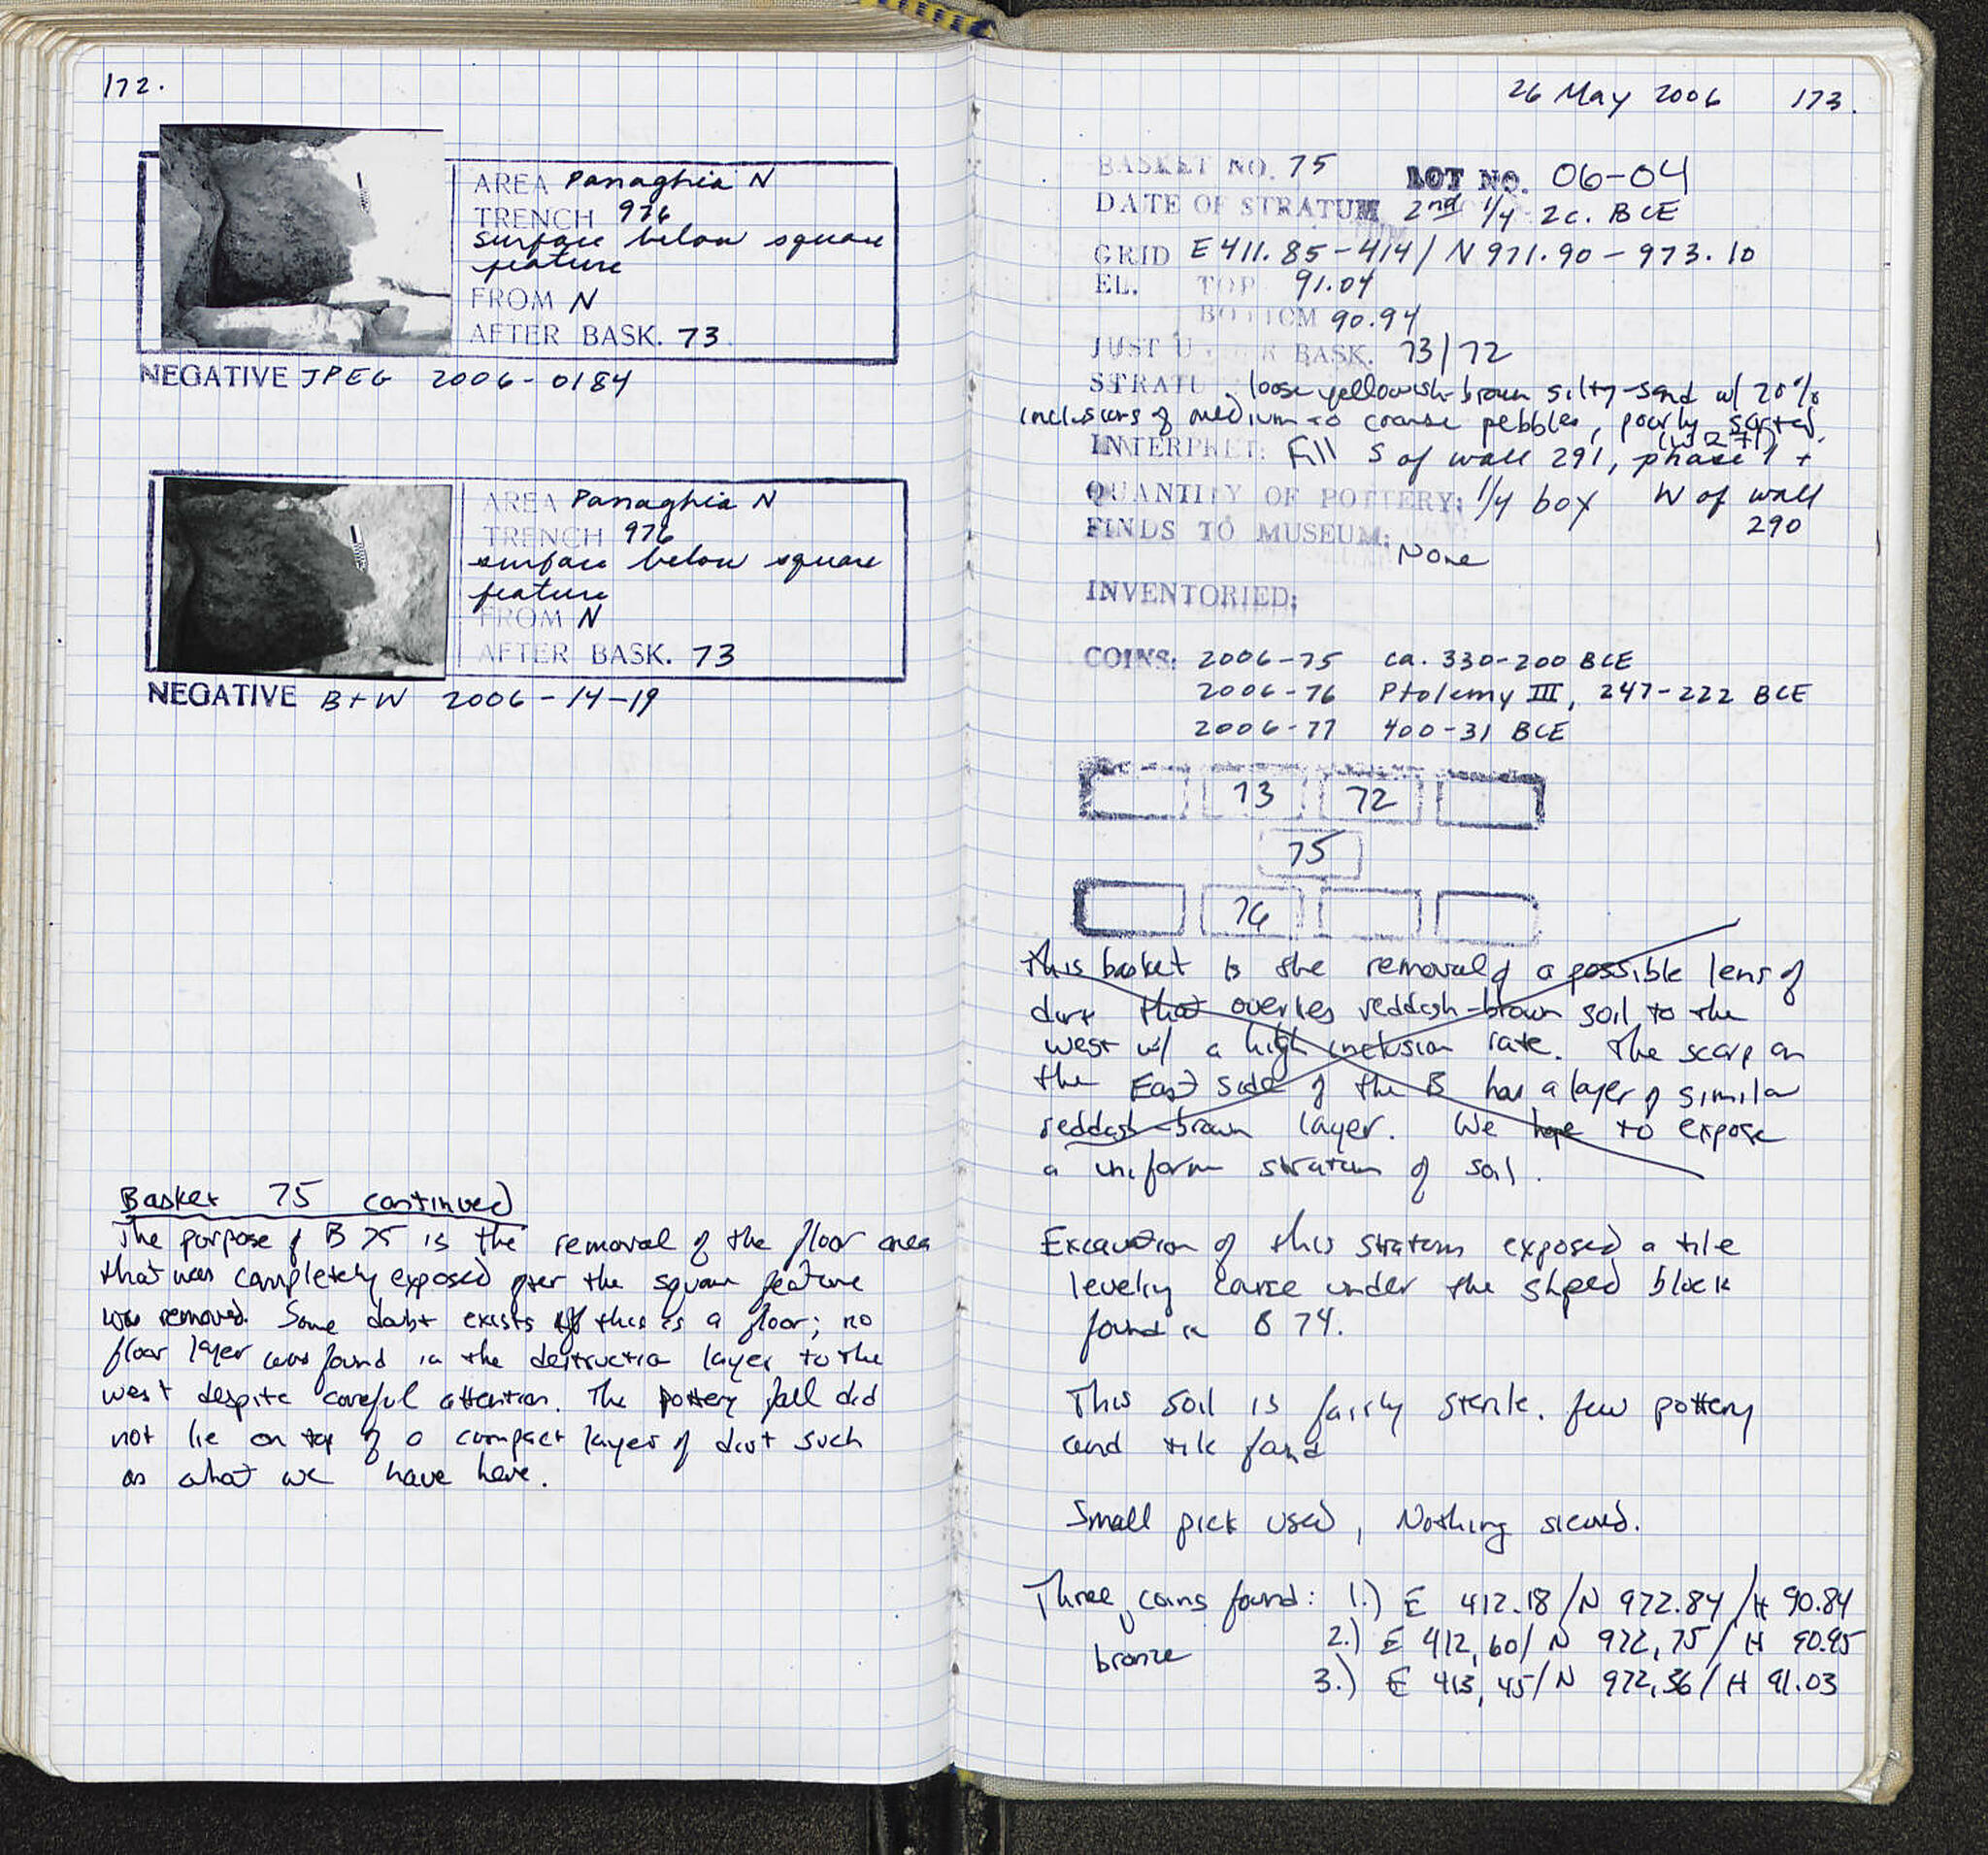 172.
AREA Panaghia N
TRENCH 976
surface below square
feature
FROM N
AFTER BASK. 73
NEGATIVE JPEG 2006-0184
AREA Panaghia N
TRENCH 976
surface below square
feature
FROM N
AFTER BASK. 73
NEGATIVE B+W 2006-14-19
Basket 75 continued
The purpose of B 75 is the removal of the floor area
that was completely exposed after the square feature
was removed. Some doubt exists if this is a floor; no
floor layer was found in the destruction layer to the
west despite careful attention. The pottery fall did
not lie on top of a compact layer of dirt such
as what we have here.
26 May 2006 173.
BASKET NO. 75 LOT NO. 06-04
DATE OF STRATUM 2nd 1/4 2c. BCE
GRID E 411.85-414/ N 971.90-973.10
EL. TOP 91.04
BOTTOM 90.94
JUST U R BASK. 73/72
STRATU loose yellowish-brown silty-sand w/ 20%
inclusions of medium to coarse pebbles, poorly sorted.
INTERPRET: Fill S of wall 291, phase 1 +
QUANTITY OF POTTERY: 1/4 box W of wall
290
FINDS TO MUSEUM: None
INVENTORIED:
COINS: 2006-75 ca. 330-200 BCE
2006-76 Ptolemy III, 247-222 BCE
2006-77 400-31 BCE
73 72
75
76
This basket is the removal of a possible lens of
dirt that overlies reddish-brown soil to the
west w/ a high inclusion rate. The scarp on
the East side of the B has a layer of similar
reddish-brown layer. We hope to expose
a uniform stratum of soil.
Excavation of this stratum exposed a tile
leveling course under the shaped block
found in B 74.
This soil is fairly sterile. few pottery
and tile found
Small pick used, Nothing sieved.
Three coins found: 1.) E 412.18/N 972.84/H 90.84
bronze 2.) E 412,60/ N 972,75/ H 90.95
3.) E 413,45/N 972,36/ H 91.03